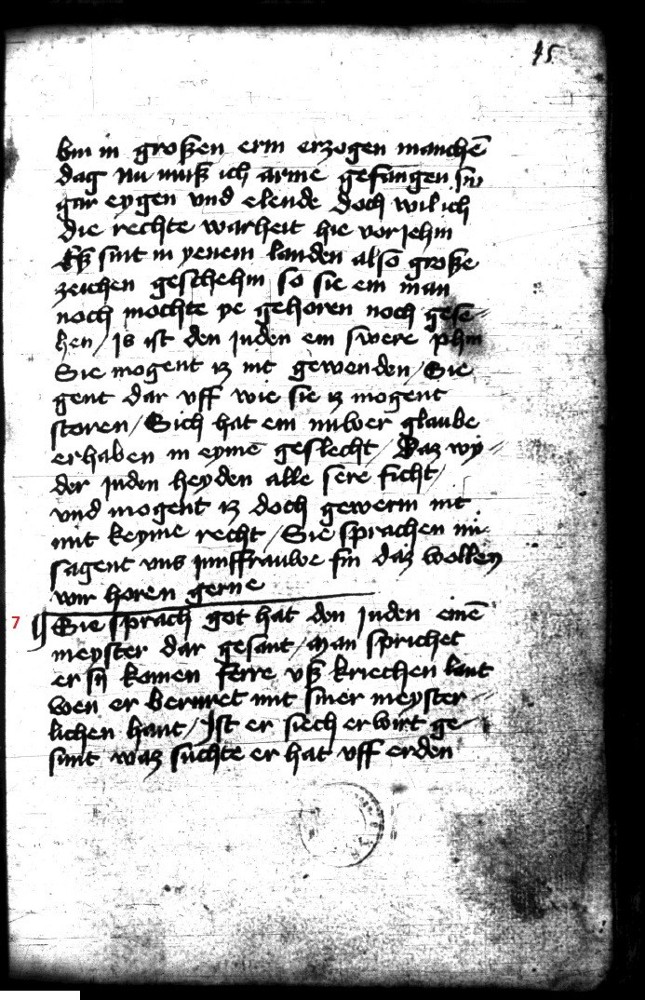 45
bin in großen ern erzogen manchē
dag Nu muß ich arme gefangen sin
gar eygen vnd elende Doch wil ich
die rechte warheit hie vorjehin
Eß sint in yenem landen also große
zeichen geschehin so sie ein man
noch mochte ye gehoren noch gese⸗
hen / is ist den juden ein swere phin
Sie mogent iz nit gewenden / Sie
gent dar vff wie sie iz mogent
storen / Sich hat ein nuwer glaube
erhaben in eymē geslecht / Daz wy⸗
der juden heyden alle sere ficht /
vnd mogent iz doch gewern nit
mit keyme recht / Sie sprachen nu
sagent vns junffrauwe fin daz wollen
wir horen gerne
7 ¶ Sie sprach got hat den juden einē
meyster dar gesant / man sprichet
er sy komen ferre vß kriechen lant
wen er beruret mit siner meyster⸗
lichen hant / Ist er siech er wirt ge⸗
sunt waz suchte er hat vff erden